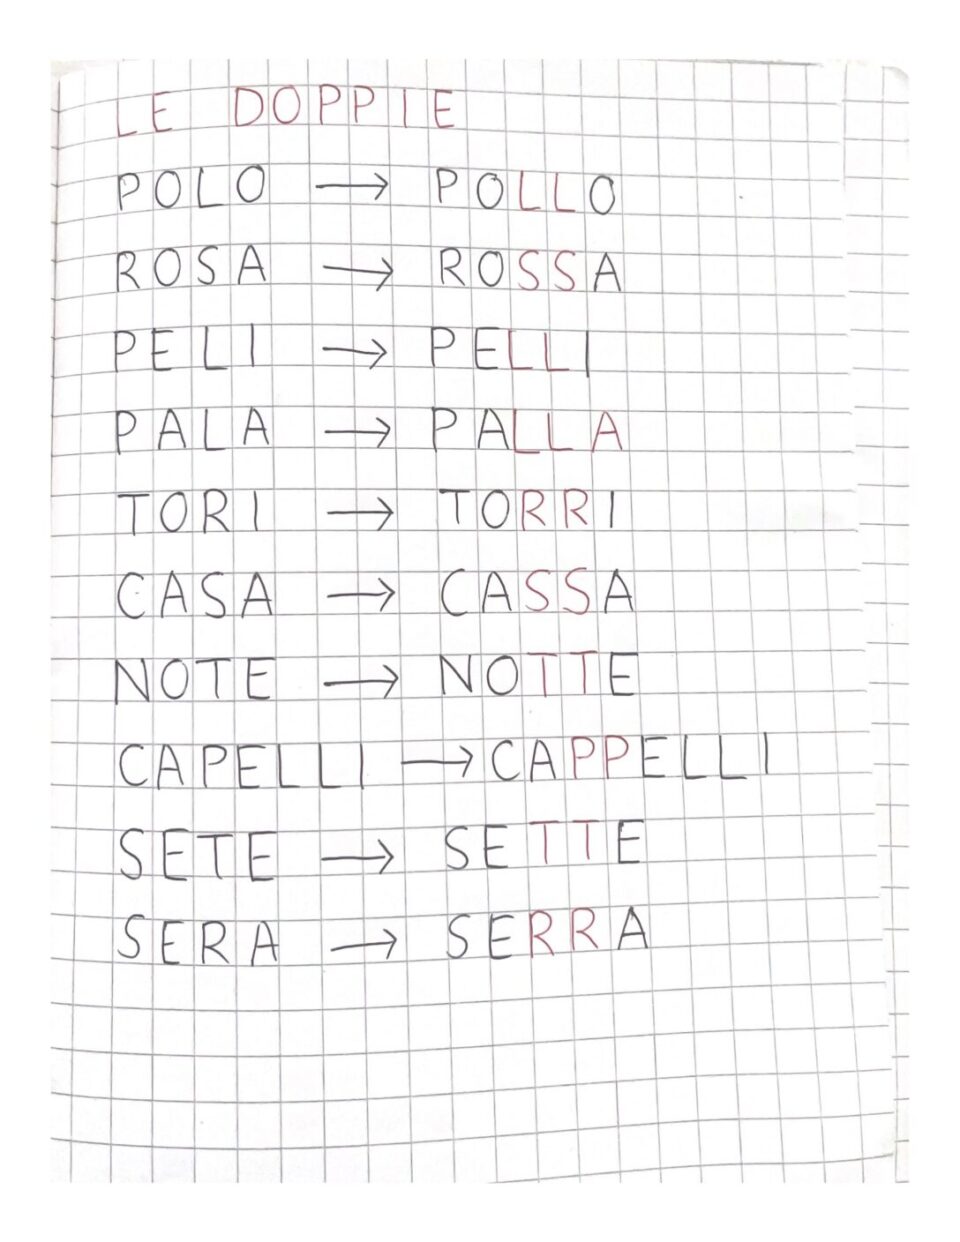 LE DOPPIE
POLO → POLLO
ROSA → ROSSA
PELI → PELLI
PALA → PALLA
TORI → TORRI
CASA → CASSA
NOTE → NOTTE
CAPELLI → CAPPELLI
SETE → SETTE
SERA → SERRA